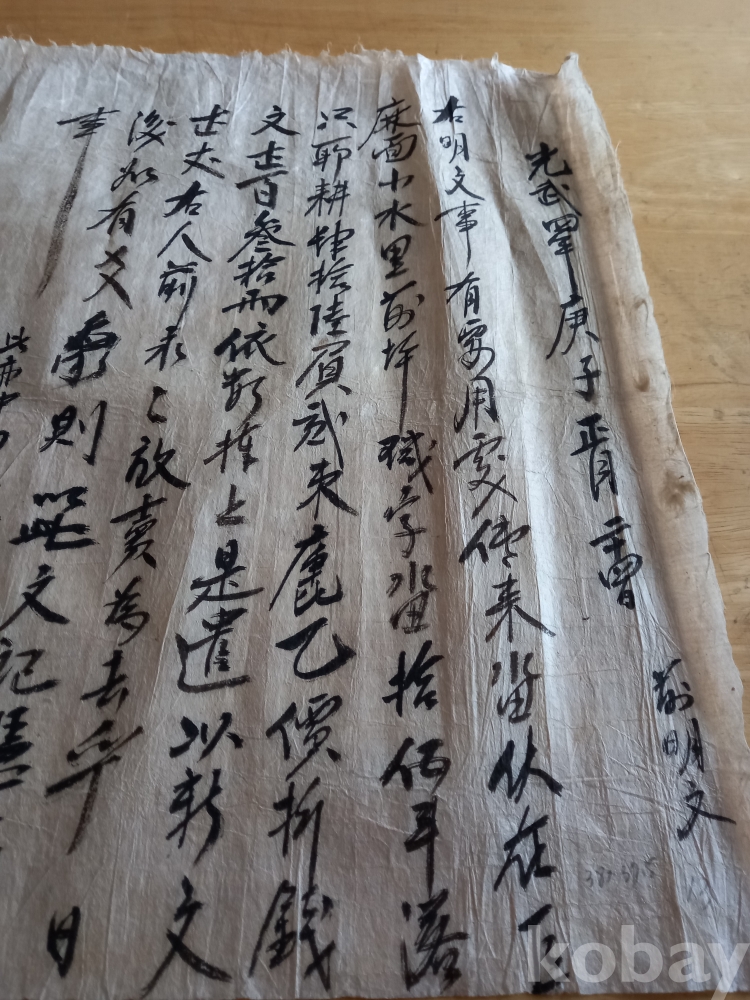 光武四年庚子正月二十四日 前明文
右明文事有要用處傳來畓伏在巨
麻面小水里前坪職字畓拾伍斗落
耕肆拾陸負貳束庫乙價折錢
文壹百參拾兩依數捧上是遣以新文
壹丈右人前永〻放賣為去乎日
後如有爻象則此文記
事
kobay